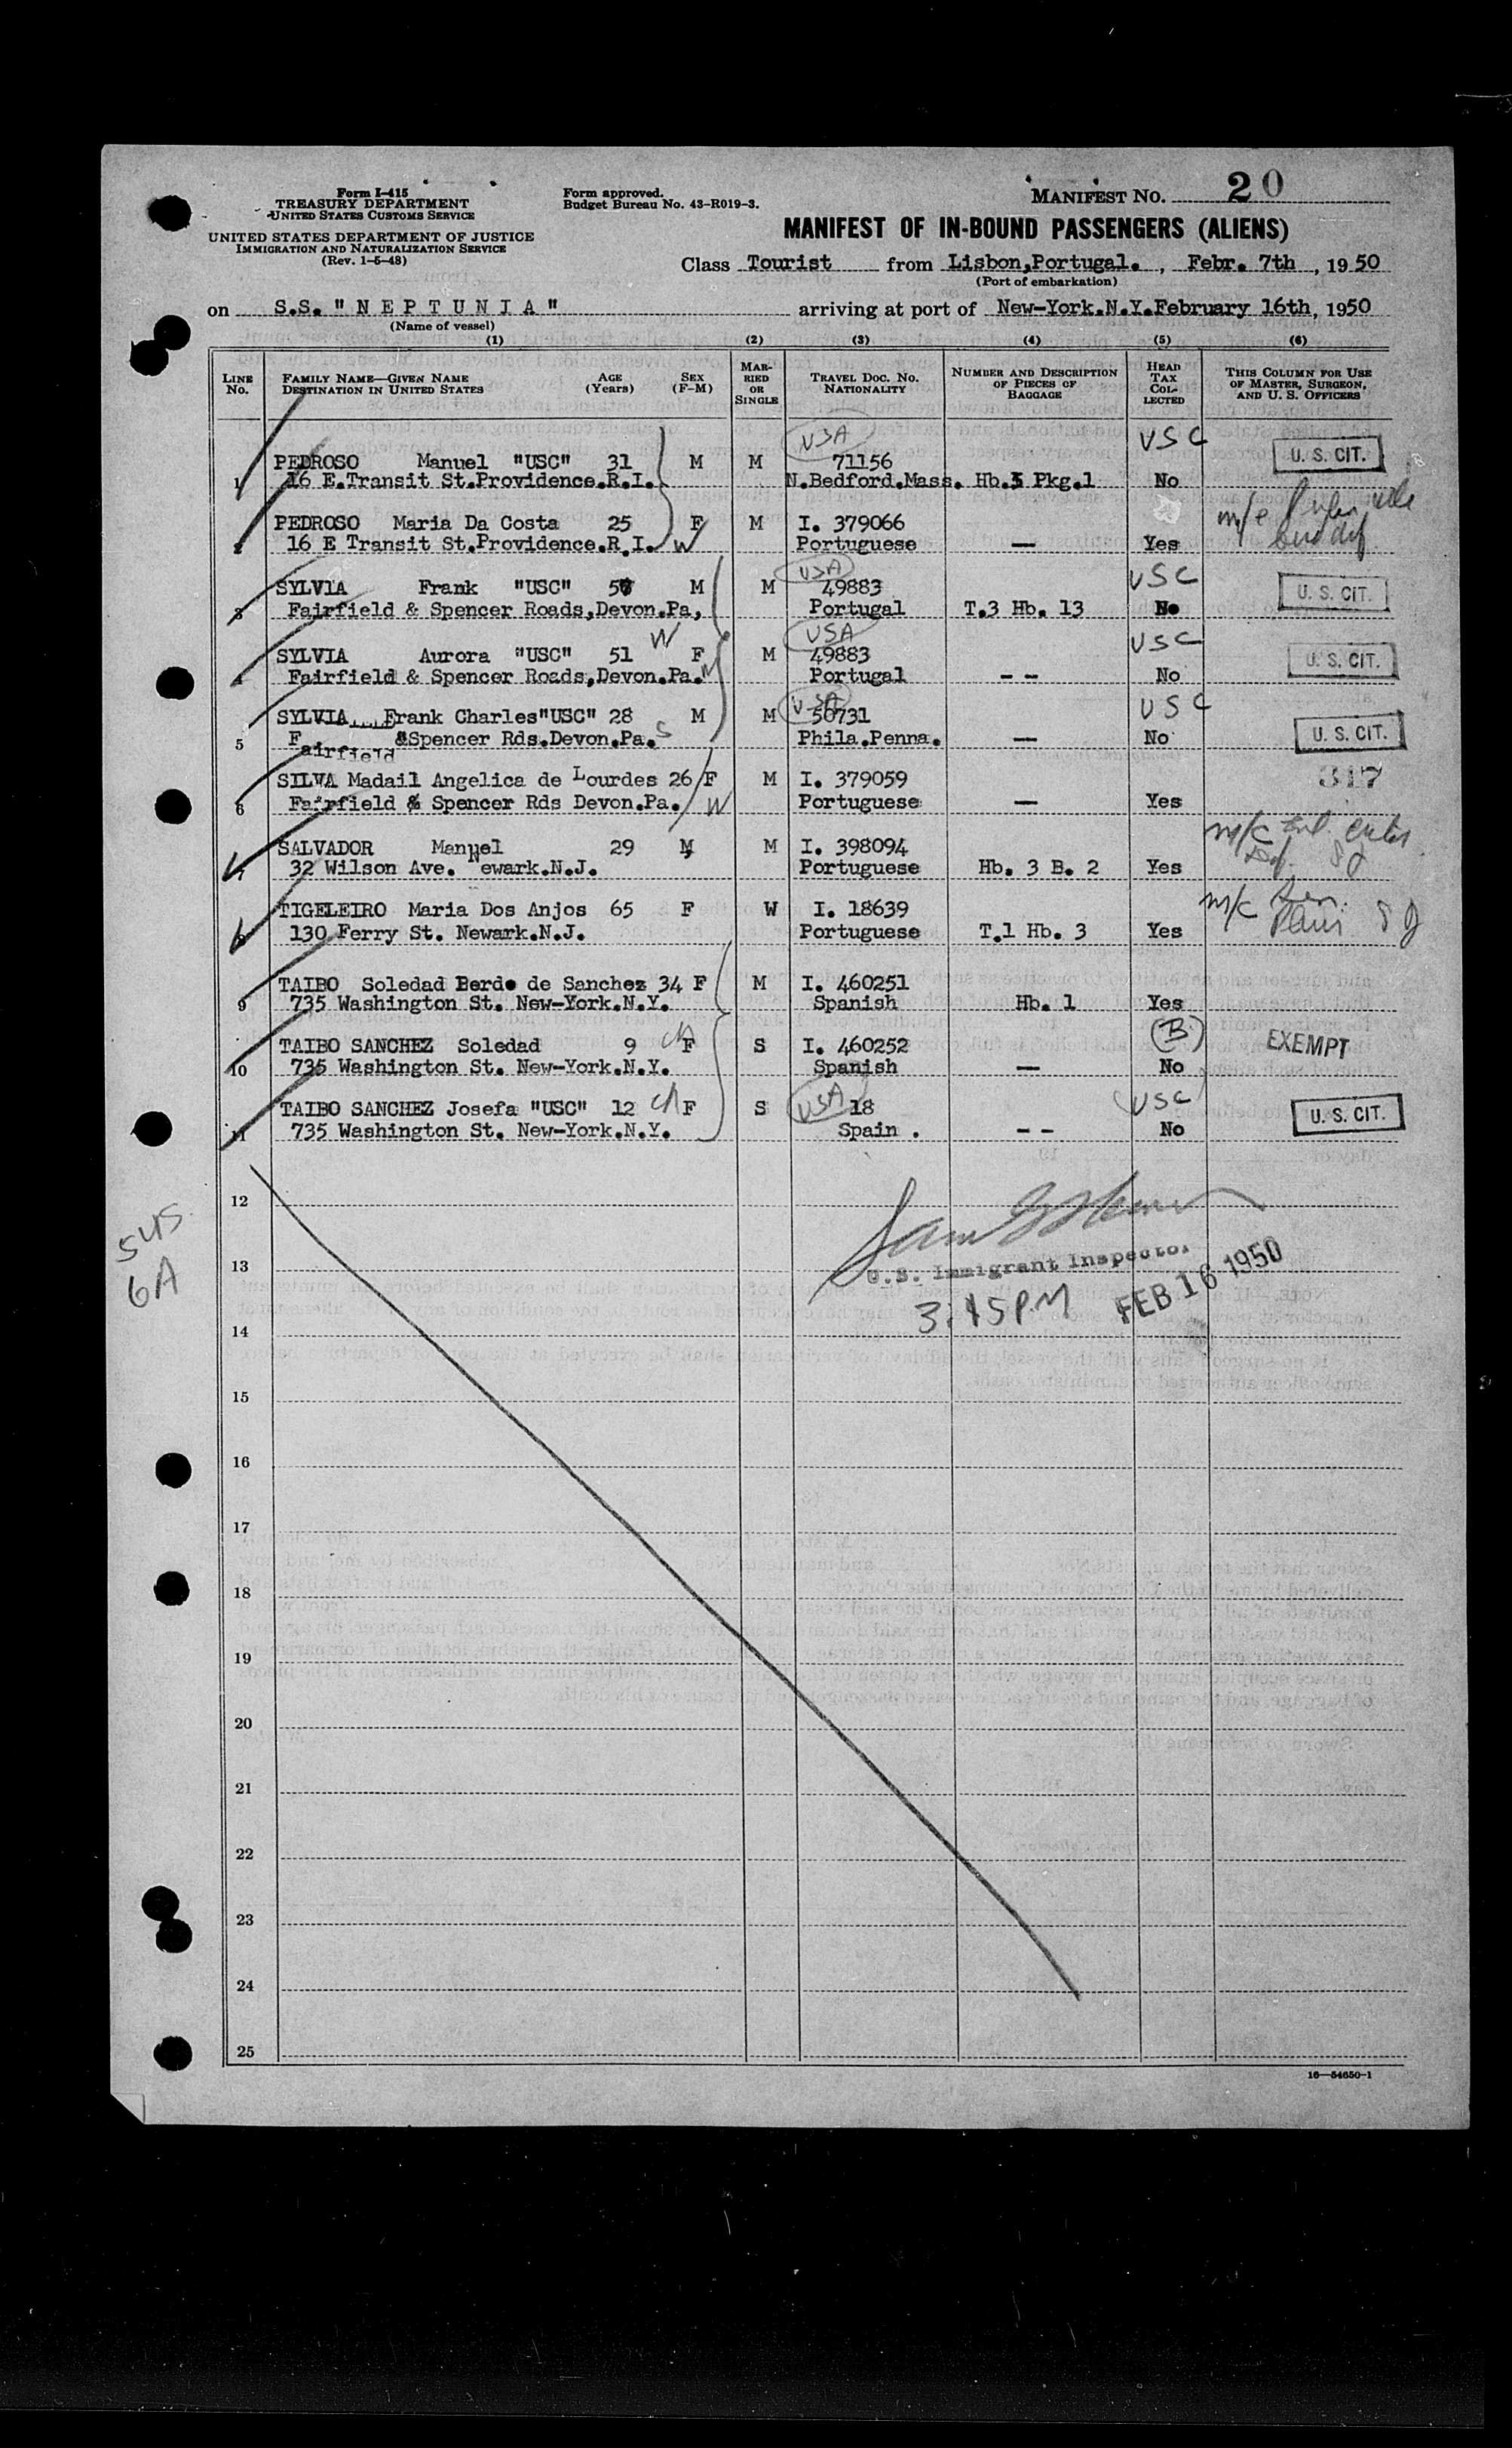 Form I-415
TREASURY DEPARTMENT
UNITED STATES CUSTOMS SERVICE
UNITED STATES DEPARTMENT OF JUSTICE
IMMIGRATION AND NATURALIZATION SERVICE
(Rev. 1-5-48)
Form approved.
Budget Bureau No. 43-R019-3.
MANIFEST NO. 20
MANIFEST OF IN-BOUND PASSENGERS (ALIENS)
Class Tourist from Lisbon,Portugal. , Febr. 7th , 19 50
(Port of embarkation)
on S.S. "NEPTUNIA" arriving at port of New-York.N.Y.February 16th, 1950
(Name of vessel)
(1) (2) (3) (4) (5) (6)
LINE NO. FAMILY NAME—GIVEN NAME DESTINATION IN UNITED STATES AGE (YEARS) SEX (F-M) MARRIED OR SINGLE TRAVEL DOC. NO. NATIONALITY NUMBER AND DESCRIPTION OF PIECES OF BAGGAGE HEAD TAX COLLECTED THIS COLUMN FOR USE OF MASTER, SURGEON, AND U. S. OFFICERS
USA USC
PEDROSO Manuel "USC" 31 M M 71156 U. S. CIT.
1 16 E.Transit St.Providence.R.I. N.Bedford.Mass. Hb.5 Pkg.1 No
PEDROSO Maria Da Costa 25 F M I. 379066
2 16 E Transit St.Providence.R.I. W Portuguese — Yes
USA USC
SYLVIA Frank "USC" 57 M M 49883 U. S. CIT.
3 Fairfield & Spencer Roads,Devon.Pa, Portugal T.3 Hb. 13 No
W USA USC
SYLVIA Aurora "USC" 51 F M 49883 U. S. CIT.
4 Fairfield & Spencer Roads,Devon.Pa. Portugal - - No
USA USC
SYLVIA Frank Charles"USC" 28 M M 50731
5 Fairfield &Spencer Rds.Devon.Pa. S Phila.Penna. — No U. S. CIT.
SILVA Madail Angelica de Lourdes 26 F M I. 379059 317
6 Fairfield & Spencer Rds Devon.Pa. W Portuguese — Yes
SALVADOR Manuel 29 M M I. 398094
7 32 Wilson Ave. Newark.N.J. Portuguese Hb. 3 B. 2 Yes
TIGELEIRO Maria Dos Anjos 65 F W I. 18639
8 130 Ferry St. Newark.N.J. Portuguese T.1 Hb. 3 Yes
TAIBO Soledad Berdo de Sanchez 34 F M I. 460251
9 735 Washington St. New-York.N.Y. Spanish Hb. 1 Yes
TAIBO SANCHEZ Soledad 9 ch F S I. 460252 (B) EXEMPT
10 735 Washington St. New-York.N.Y. Spanish — No
TAIBO SANCHEZ Josefa "USC" 12 ch F S USA 18 USC U. S. CIT.
11 735 Washington St. New-York.N.Y. Spain . - - No
12
545
6A
13
U.S. Immigrant Inspector
3:15 P.M FEB 16 1950
14
15
16
17
18
19
20
21
22
23
24
25
16—54650-1